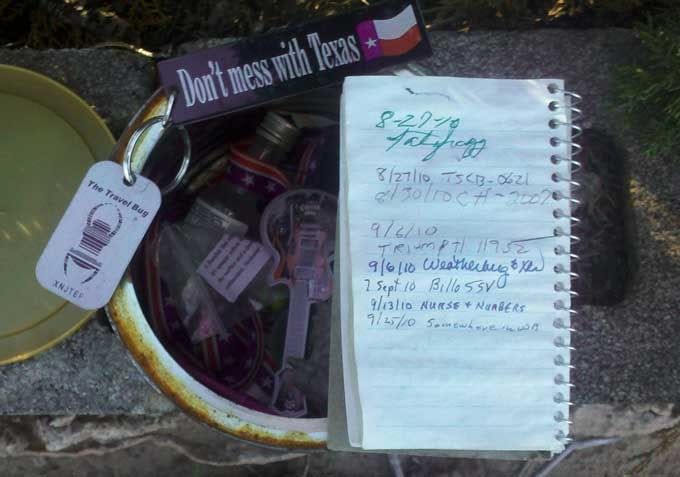 Don't mess with Texas
The Travel Bug
XNJTEF
8-27-10
8/27/10 TSCB-0621
8/30/10 CH-2002
9/6/10
TRIUMPH 11952
9/6/10 Weatherbug &
7 Sept 10 Bill655V
9/13/10 NURSE + NUMBERS
9/25/10 Somewhere in WA